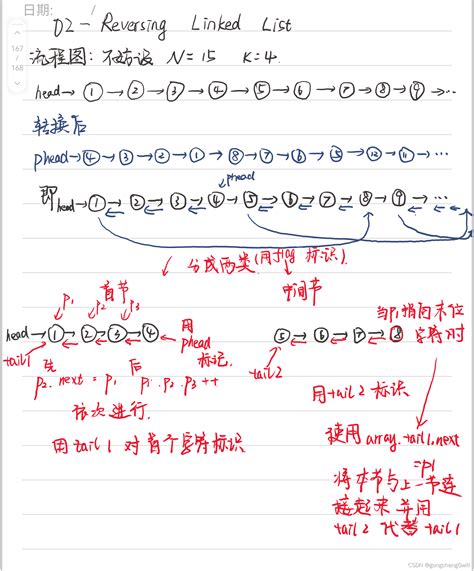 日期: /
167
/
168
02 - Reversing Linked List
流程图: 不妨设 N = 15 K = 4.
head→ ① → ② → ③ → ④ → ⑤ → ⑥ → ⑦ → ⑧ → ⑨ → ...
转换后
phead→ ④ → ③ → ② → ① → ⑧ → ⑦ → ⑥ → ⑤ → ⑫ → ⑪ → ...
phead
即 head→ ① ② ③ ④ ⑤ ⑥ ⑦ ⑧ ⑨ ...
分成两类(用flag 标识).
首节 中间节
p1 p2 p3
head→ ① ② ③ ④ 用 phead 标记.
tail1 先 后
p2.next = p1 p1.p2.p3++
依次进行.
用 tail1 对首个字符标识
⑤ ⑥ ⑦ ⑧
tail2
当p1指向末位字符时
用tail2 标识
使用 array.tail1.next
=p1
将本节与上一节连
接起来 并用
tail2 代替 tail1
CSDN @gongzhangSwift